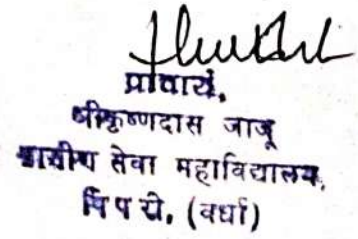 प्राचार्य,
श्रीकृष्णदास जाजू
ग्रामीण सेवा महाविद्यालय,
पिपरी, (वर्धा)